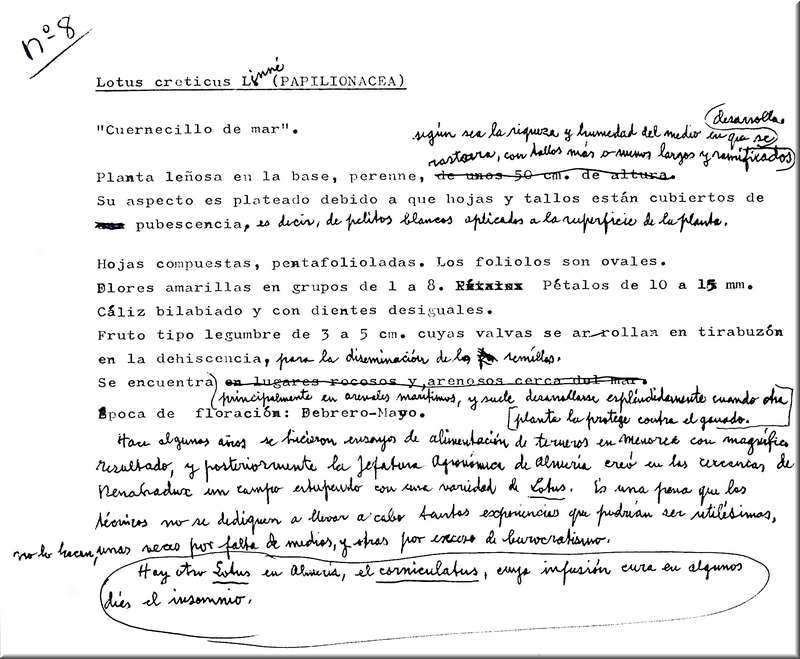 nº 8
Lotus creticus Linné (PAPILIONACEA)
"Cuernecillo de mar".
desarrolla.
según sea la riqueza y humedad del medio en que se
rastrera, con tallos más o menos largos y ramificados
Planta leñosa en la base, perenne, de unos 50 cm. de altura.
Su aspecto es plateado debido a que hojas y tallos están cubiertos de
pubescencia, es decir, de pelitos blancos aplicados a la superficie de la planta.
Hojas compuestas, pentafolioladas. Los foliolos son ovales.
Flores amarillas en grupos de 1 a 8. Pétalos de 10 a 15 mm.
Cáliz bilabiado y con dientes desiguales.
Fruto tipo legumbre de 3 a 5 cm. cuyas valvas se arrollan en tirabuzón
en la dehiscencia, para la diseminación de las semillas.
Se encuentra en lugares rocosos y arenosos cerca del mar.
principalmente en arenales marítimos, y suele desarrollarse espléndidamente cuando otra
Epoca de floración: Febrero-Mayo. planta la protege contra el ganado.
Hace algunos años se hicieron ensayos de alimentación de terneros en Menorca con magnífico
resultado, y posteriormente la Jefatura Agronómica de Almería creó en las cercanías de
Benahadux un campo estupendo con una variedad de Lotus. Es una pena que los
técnicos no se dediquen a llevar a cabo tantas experiencias que podrían ser utilísimas,
no lo hacen, unas veces por falta de medios, y otras por exceso de burocratismo.
Hay otro Lotus en Almería, el corniculatus, cuya infusión cura en algunos
días el insomnio.